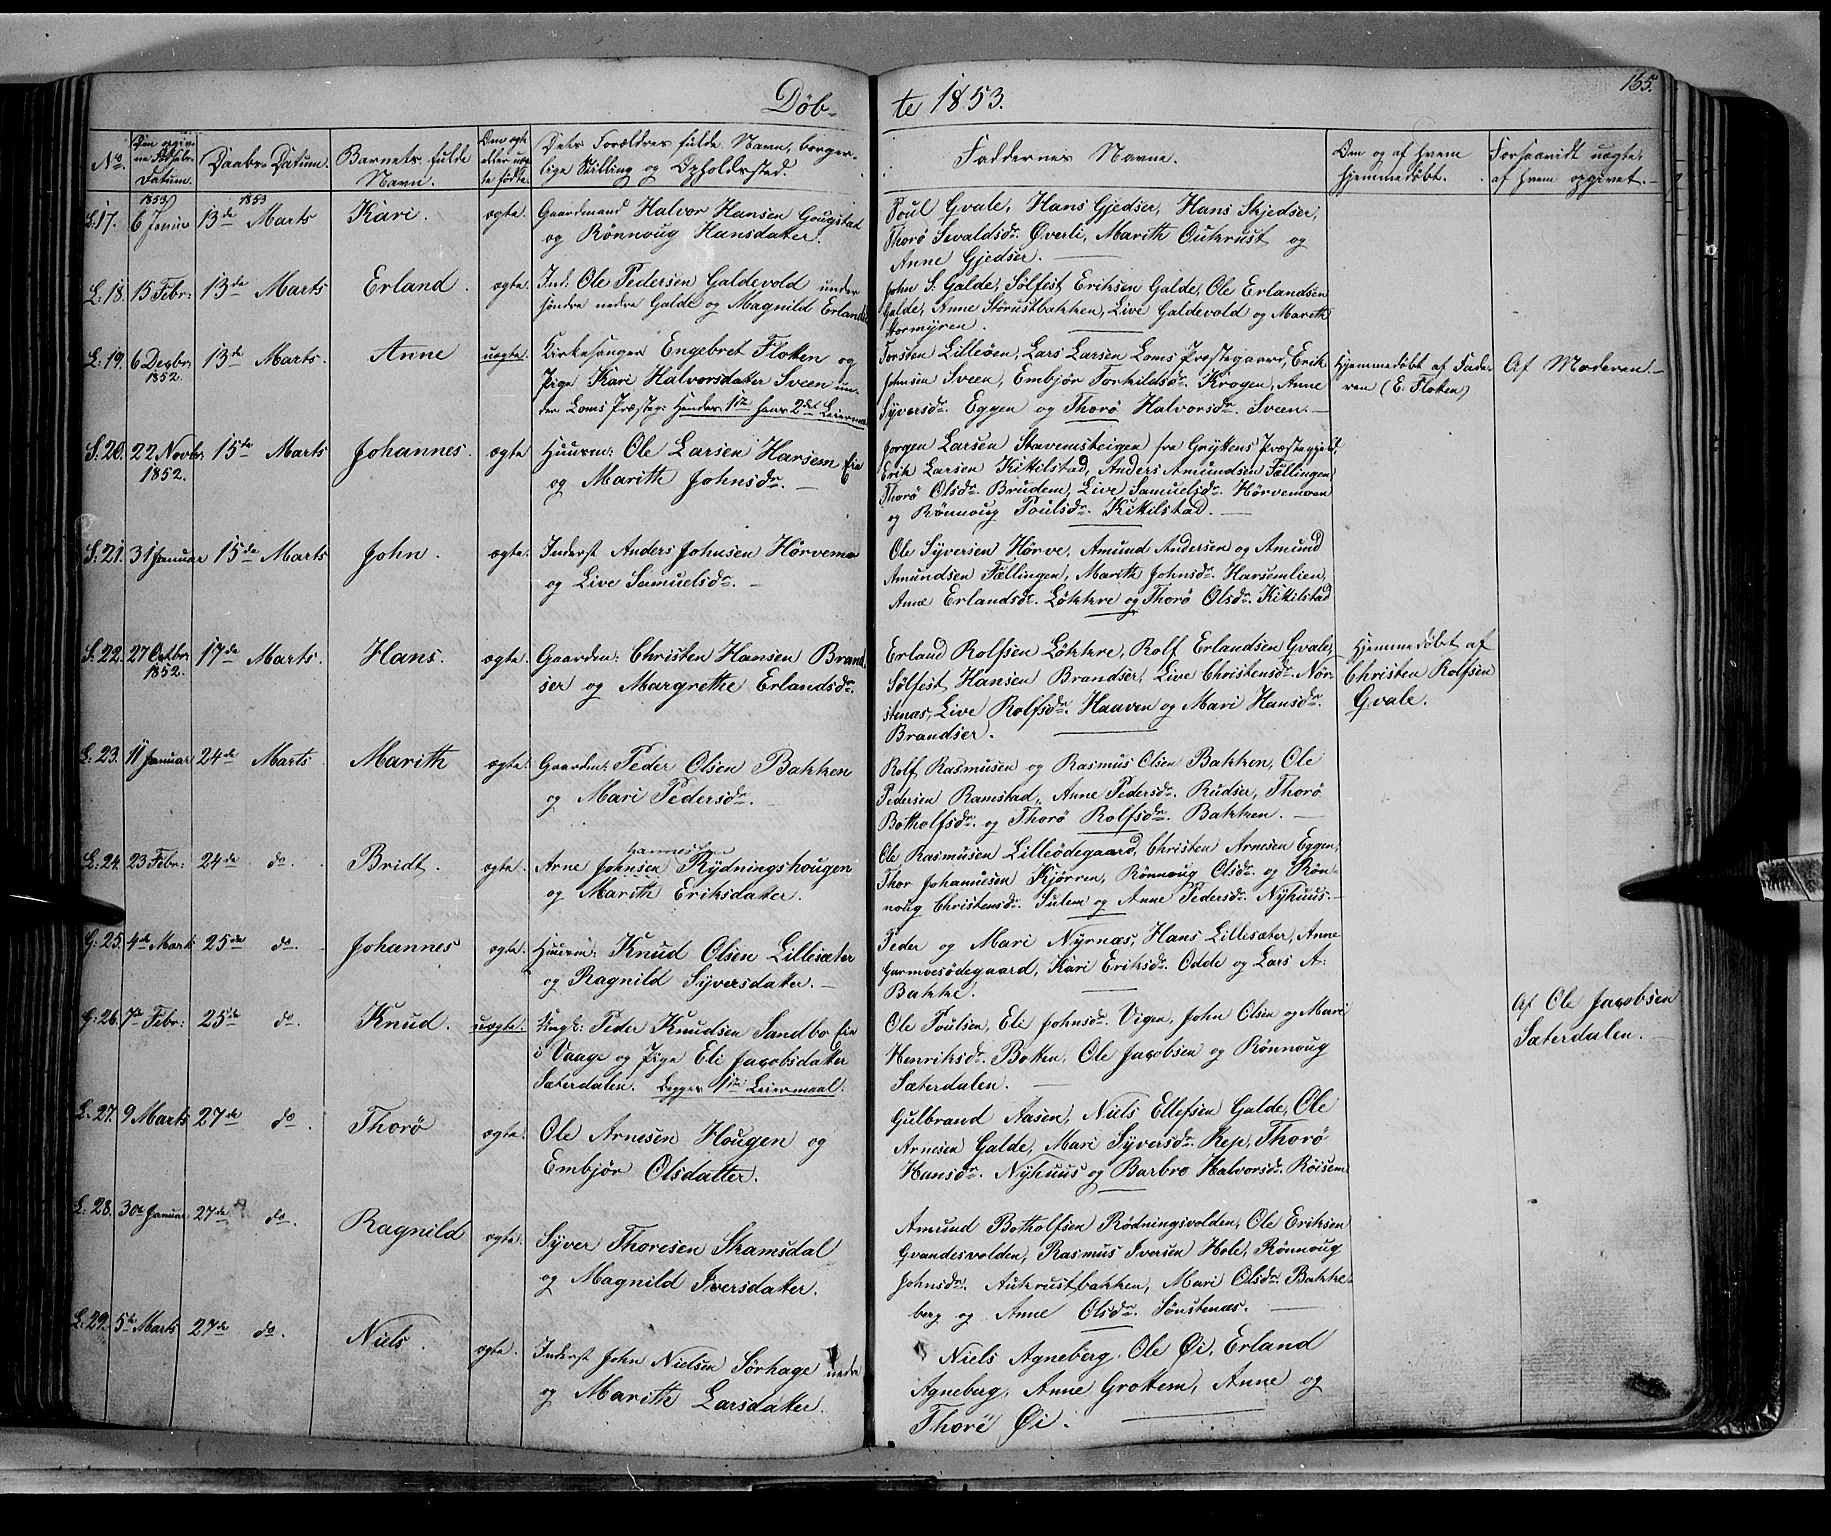 Døb-
te 1853.
165.
No.
Den opgiv-
ne Fødsels-
Datum.
Daabs-Datum.
Barnets fulde
Navn.
Om ægte
eller uæg-
te fødte.
Dets Forældres fulde Navn, borger-
lige Stilling og Opholdssted.
Faddernes Navne.
Om og af hvem
hjemmedøbt.
Forsaavidt uægte,
af hvem opgivet.
1853
1853
L. 17. 6 Januar 13de Marts Kari. ægte. Gaardmand Halvor Hansen Gougstad
og Rönnoug Hansdatter.
Poul Gvale, Hans Gjedser, Hans Skjedser,
Thorö Sevaldsdr. Øverli, Marith Aukrust og
Anne Gjedser.
L. 18. 15 Febr: 13de Marts Erland. ægte. Ind: Ole Pedersen Galdevold under
søndre nedre Galde og Magnild Erlandsd
John S. Galde, Sölfest Eriksen Galde, Ole Erlandsen
Galde, Anne Störustbakken, Live Galdevold og Marith
Stormyren.
L. 19. 6 Decbr: 1852. 13de Marts. Anne uægte. Kirkesanger Engebret Floten og
Pige Kari Halvorsdatter Sveen un-
der Loms Præsteg: Hendes 1ste hans 2det Leiermaal
Torsten Lilleöen, Lars Larsen Loms Præstegaard, Erik
Johnsen Sveen, Embjör Torkildsdr. Krogen, Anne
Syversdr. Eggen og Thorö Halvorsdr. Sveen.
Hjemmedöbt af Fade-
ren (E. Floten)
Af Moderen.
S. 20. 22 Novbr. 1852. 15de Marts Johannes. ægte Huusm: Ole Larsen Harsem Eie
og Marith Johnsdr.
Jorgen Larsen Stavemsteigen fra Gryttens Præstegjeld,
Erik Larsen Kikilstad, Anders Amundsen Fællingen
Thorö Olsdr. Brudem, Live Samuelsdr. Hörvemoen
og Rönnoug Poulsdr. Kikilstad.
S. 21. 31 Januar 15de Marts John. ægte. Inderst Anders Johnsen Hörvemo
og Live Samuelsdr.
Ole Syversen Hörve, Amund Andersen og Amund
Amundsen Fællingen, Marith Johnsdr. Harsemlien,
Anne Erlandsdr. Lökkre og Thorö Olsdr. Kikilstad
S. 22. 27 Octbr. 1852. 17de Marts. Hans. ægte. Gaardm: Christen Hansen Brand-
ser og Margrethe Erlandsdr.
Erland Rolfsen Lökkre, Rolf Erlandsen Gvale,
Sölfest Hansen Brandser, Live Christensdr. Nör-
stenæs, Live Rolfsdr. Haaven og Mari Hansdr.
Brandser.
Hjemmedöbt af
Christen Rolfsen
Gvale.
L. 23. 11 Januar 24de Marts Marith ægte. Gaardm: Peder Olsen Bakken
og Mari Pedersdr.
Rolf Rasmusen og Rasmus Olsen Bakken, Ole
Pedersen Ramstad, Anne Pedersdr. Rudser, Thorö
Botholfsdr. og Thorö Rolfsdr. Bakken.
L. 24. 23 Febr: 24de do. Bridt. ægte. Arne Johnsen Rydningshougen
hannes
og Marith Eriksdatter.
Ole Rasmusen Lilleödegaard, Christen Arnesen Eggen,
Thor Johannesen Kjörren, Rönnoug Olsdr. og Rön-
noug Christensdr. Sulem og Anne Pedersdr. Nyhuus.
G. 25. 4de Marts 25de do. Johannes ægte. Huusm: Knud Olsen Lillesæter
og Ragnild Syversdatter.
Peder og Mari Nyrnæs, Hans Lillesæter, Anne
Garmoesödegaard, Kari Eriksdr. Odde og Lars A:
Bakke.
G. 26. 7de Febr: 25de do. Knud. uægte. Ungk: Peder Knudsen Sandbo Eie
i Vaage og Pige Eli Jacobsdatter
Sæterdalen. Begges 1ste Leiermaal.
Ole Poulsen, Eli Johnsdr. Vigen, John Olsen og Mari
Henriksdr. Botten, Ole Jacobsen og Rönnoug
Sæterdalen.
Af Ole Jacobsen
Sæterdalen.
L. 27. 9 Marts 27de do. Thorö ægte. Ole Arnesen Hougen og
Embjör Olsdatter.
Gulbrand Aasen, Niels Ellefsen Galde, Ole
Arnesen Galde, Mari Syversdr. Rep, Thorö
Hansdr. Nyhuus og Barbro Halvorsdr. Röisem
L. 28. 30te Januar 27de do. Ragnild ægte. Syver Thoresen Skamsdal
og Magnild Iversdatter.
Amund Botholfsen Rödningsvolden, Ole Eriksen
Gvandesvolden, Rasmus Iversen Hole, Rönnoug
Johnsdr. Aukrustbakken, Mari Olsdr. Bakke-
berg og Anne Olsdr. Sönstenæs.
L. 29. 5te Marts 27de do. Niels. ægte. Inderst John Nielsen Sörhage nedre
og Marith Larsdatter.
Niels Agneberg, Ole Øi, Erland
Agneberg, Anne Grottem, Anne og
Thorö Øi.